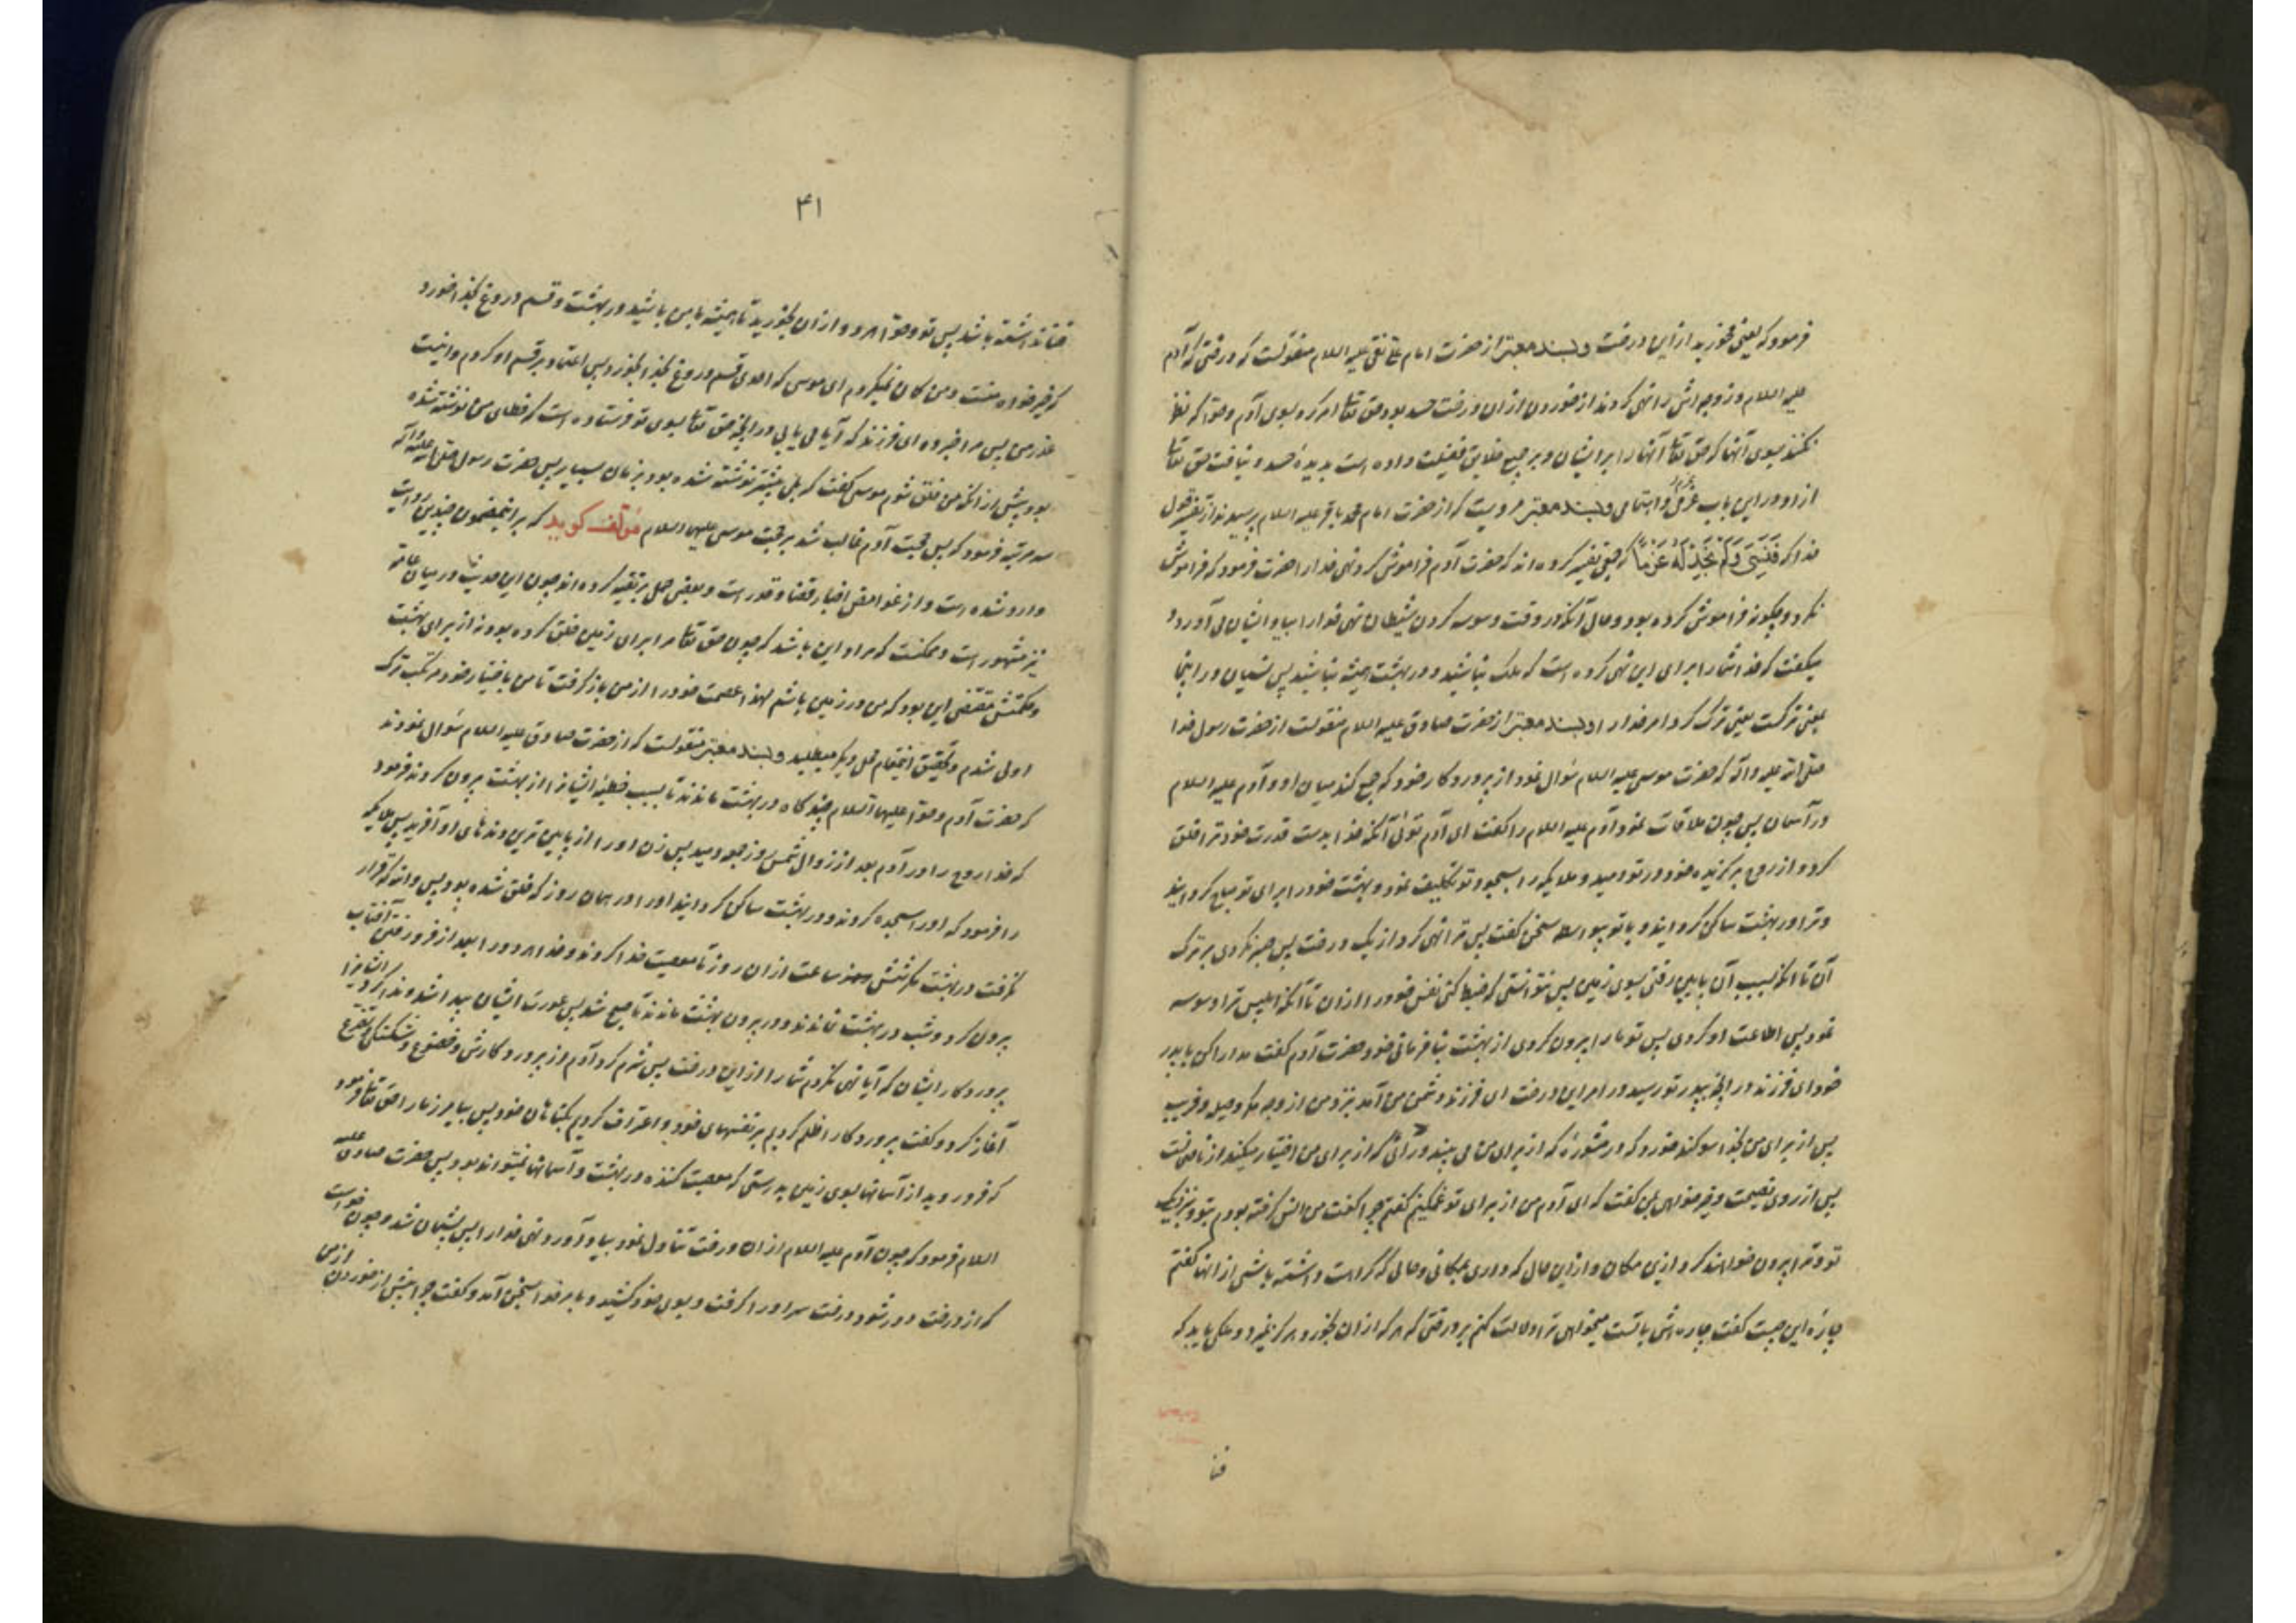 فرمود که یعنی مخورید از این درخت و بسند معتبر از حضرت امام علی نقی علیه السلام منقولست که درختی که آدم
علیه السلام و زوجه‌اش را نهی کردند از خوردن از ان درخت حسد بود و حق تعالی امر کرد بسوی آدم و حوا که نظر
نکنند بسوی آنها که حق تعالی آنها را بر ایشان و بر جمیع خلایق فضیلت داده است بدیدهٔ حسد و نیافت حق تعالی
از او در این باب عزمی و اهتمامی و بسند معتبر مرویست که از حضرت امام محمد باقر علیه السلام پرسیدند از تفسیر قول
خدا که فَنَسِیَ وَلَمْ نَجِدْ لَهُ عَزْمًا که جمعی تفسیر کرده‌اند که حضرت آدم فراموش کرد نهی خدا را حضرت فرمود که فراموش
نکرد و چگونه فراموش کرده بود و حال آنکه در وقت وسوسه کردن شیطان نهی خدا را بیاد ایشان می آورد و
میکفت که خدا شما را برای این نهی کرده است که ملک نباشید و در بهشت همیشه نباشید پس نسیان در اینجا
بمعنی ترکست یعنی ترک کرد امر خدا را و بسند معتبر از حضرت صادق علیه السلام منقولست از حضرت رسول خدا
صلی الله علیه و آله که حضرت موسی علیه السلام سوال نمود از پروردکار خود که جمع کند میان او و آدم علیه السلام
در آسمان پس چون ملاقات نمود آدم علیه السلام را کفت ای آدم توئی آنکه خدا بدست قدرت خود ترا خلق
کرد و از روح برکزیده خود در تو دمید و ملایکه را بسجود تو تکلیف نمود و بهشت خود را برای تو مباح کردانید
و ترا در بهشت ساکن کردانید و با تو بیواسطه سخن کفت پس ترا نهی کرد از یک درخت پس صبر نکردی بر ترک
آن تا انکه بسبب آن بپایین رفتی بسوی زمین پس نتوانستی که ضبط کنی نفس خود را از ان تا آنکه ابلیس ترا وسوسه
نمود پس اطاعت او کردی پس تو ما را بیرون کردی از بهشت بنافرمانی خود حضرت آدم کفت مدارا کن با پدر
خود ای فرزند در انچه بپدر تو رسید در امر این درخت ای فرزند دشمن من آمد بنزد من از وجه مکر و حیله و فریب
پس از برای من بخدا سوکند خورد که در مشورهٔ که از برای من می بیند و رائی که از برای من اختیار میکند از ناصحانست
پس از روی نصیحت و خیرخواهی بمن کفت که ای آدم من از برای تو غمکینم کفتم چرا کفت من انس کرفته بودم بتو و بنزدیکی
تو و ترا بیرون خواهند کرد از این مکان و از این حال که داری بمکانی و حالی که کراهت داشته باشی از انها کفتم
چارهٔ این چیست کفت چاره‌اش با تست میخواهی ترا دلالت کنم بر درختی که هر که از ان بخورد هرکز نمیرد و ملکی یابد که
فنا
۴۱
فنا نداشته باشد پس تو و حوا هر دو از ان بخورید تا همیشه با من باشید در بهشت و قسم دروغ بخدا خورد
که خیرخواه منست و من کمان نمیکردم ای موسی که احدی قسم دروغ بخدا بخورد پس اعتماد بر قسم او کردم و اینست
عذر من پس مرا خبر ده ای فرزند که آیا می یابی در انچه حق تعالی بسوی تو فرستاده است که خطای من نوشته شده
بود پیش از انکه من خلق شوم موسی کفت که بلی پیشتر نوشته شده بود بزمان بسیار پس حضرت رسول صلی الله علیه و آله
سه مرتبه فرمود که پس حجت آدم غالب شد بر حجت موسی علیهما السلام مؤلف کوید که بر اینمضمون چندین روایت
وارد شده است و از غوامض اخبار قضا و قدر است و بعضی حمل بر تقیه کرده‌اند چون این حدیث در میان عامه
نیز مشهور است و ممکنست که مراد این باشد که چون حق تعالی مرا برای زمین خلق کرده بود نه از برای بهشت
و حکمتش مقتضی این بود که من در زمین باشم لهذا عصمت خود را از من باز کرفت تا من باختیار خود مرتکب ترک
اولی شدم و تحقیق اینمقام محل دیکر میطلبد و بسند معتبر منقولست که از حضرت صادق علیه السلام سوال نمودند
که حضرت آدم و حوا علیهما السلام چند کاه در بهشت ماندند تا بسبب خطیئه ایشانرا از بهشت بیرون کردند فرمود
که خدا روح را در آدم بعد از زوال شمس روز جمعه دمید پس زن او را از پایین ترین دنده‌های او آفرید پس ملایکه
را فرمود که او را سجده کردند و در بهشت ساکن کردانید او را در همان روز که خلق شده بود پس والله که قرار
نکرفت در بهشت مکر شش ساعت از ان روز تا معصیت خدا کردند و خدا هر دو را بعد از فرو رفتن آفتاب
بیرون کرد و شب در بهشت نماندند و در بیرون بهشت ماندند تا صبح شد پس عورت ایشان پیدا شد و ندا کرد ایشانرا
پروردکار ایشان که آیا نهی نکردم شما را از این درخت پس شرم کرد آدم از پروردکارش و خضوع و شکستکی و تضرع
آغاز کرد و کفت پروردکارا ظلم کردیم بر نفسهای خود و اعتراف کردیم بکناهان خود پس بیامرز ما را حق تعالی فرمود
که فرود روید از آسمانها بسوی زمین بدرستی که معصیت کننده در بهشت و آسمانها نمیتواند بود پس حضرت صادق علیه
السلام فرمود که چون آدم علیه السلام از ان درخت تناول نمود بیاد آورد نهی خدا را پس پشیمان شد و چون خواست
که از درخت دور شود درخت سر او را کرفت و بسوی خود کشید و بامر خدا بسخن آمد و کفت چرا پیش از خوردن از من